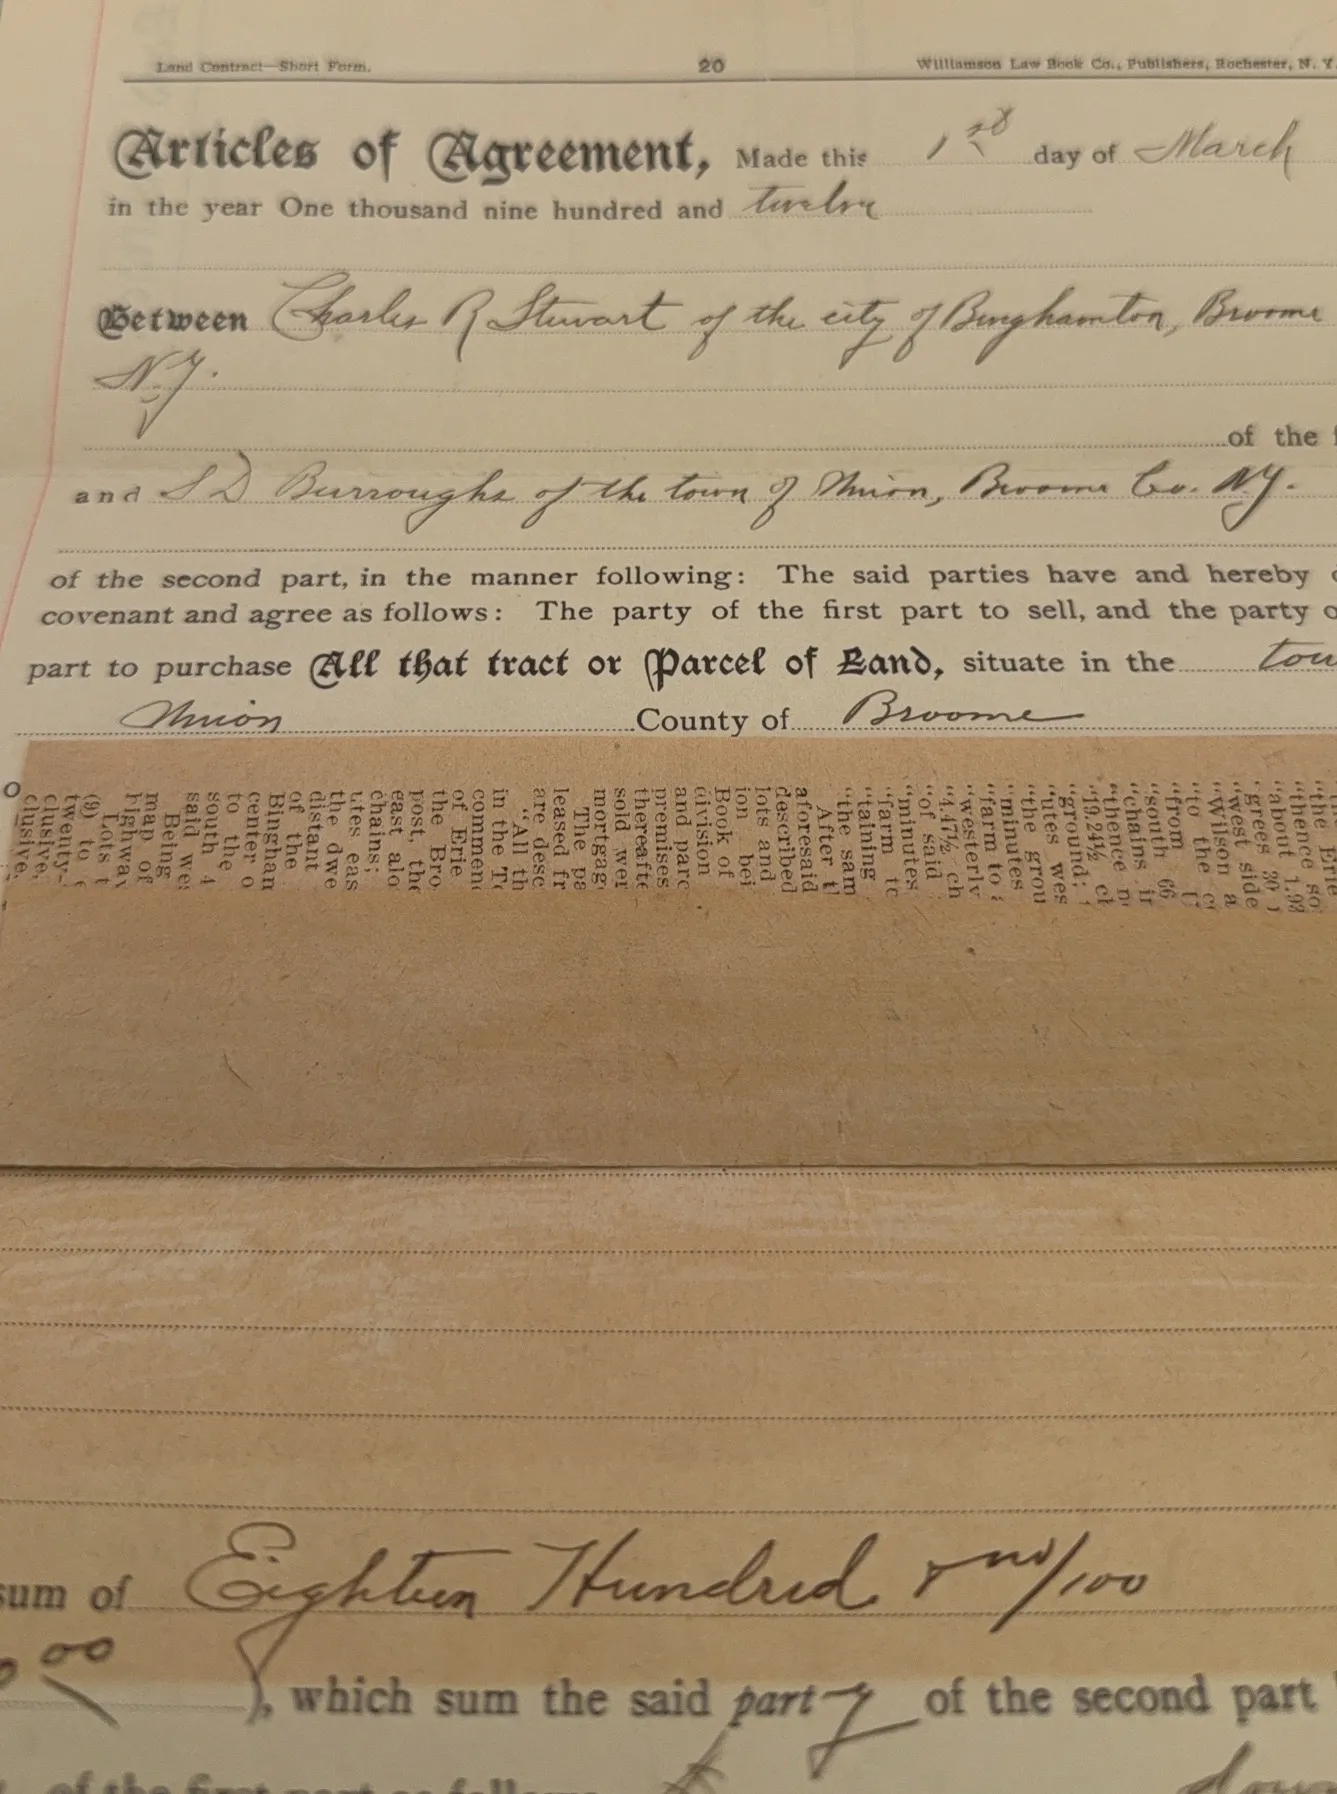 Land Contract—Short Form. 20 Williamson Law Book Co., Publishers, Rochester, N. Y.
Articles of Agreement, Made this 1st day of March
in the year One thousand nine hundred and twelve
Between Charles R Stewart of the city of Binghamton, Broome
N.Y.
of the
and S D Burroughs of the town of Union, Broome Co. N.Y.
of the second part, in the manner following: The said parties have and hereby
covenant and agree as follows: The party of the first part to sell, and the party
part to purchase All that tract or Parcel of Land, situate in the
Union County of Broome
"the Erie
"thence so
"about 1.93
"grees 30
"west side
"Wilson a
"to the
"from
"south 66
"chains
"thence
"19.24½
"ground;
"utes wes
"the grou
"minutes
"farm to
"westerly
"4.47½ ch
"of said
"minutes
"farm
"taining
"the sam
After
aforesaid
described
lots and
ion bei
Book of
division
and parc
premises
thereafte
sold wer
mortgag
The pa
leased fr
are desc
"All th
in the
commenc
of Erie
the Bro
post, the
east alo
chains;
utes eas
the dwe
distant
of the
Binghan
center o
to the
south 4
said wes
Being
map of
highway
Lots
(9) to
twenty-
clusive,
clusive,
sum of Eighteen Hundred & no/100
00), which sum the said party of the second part
of the first part as